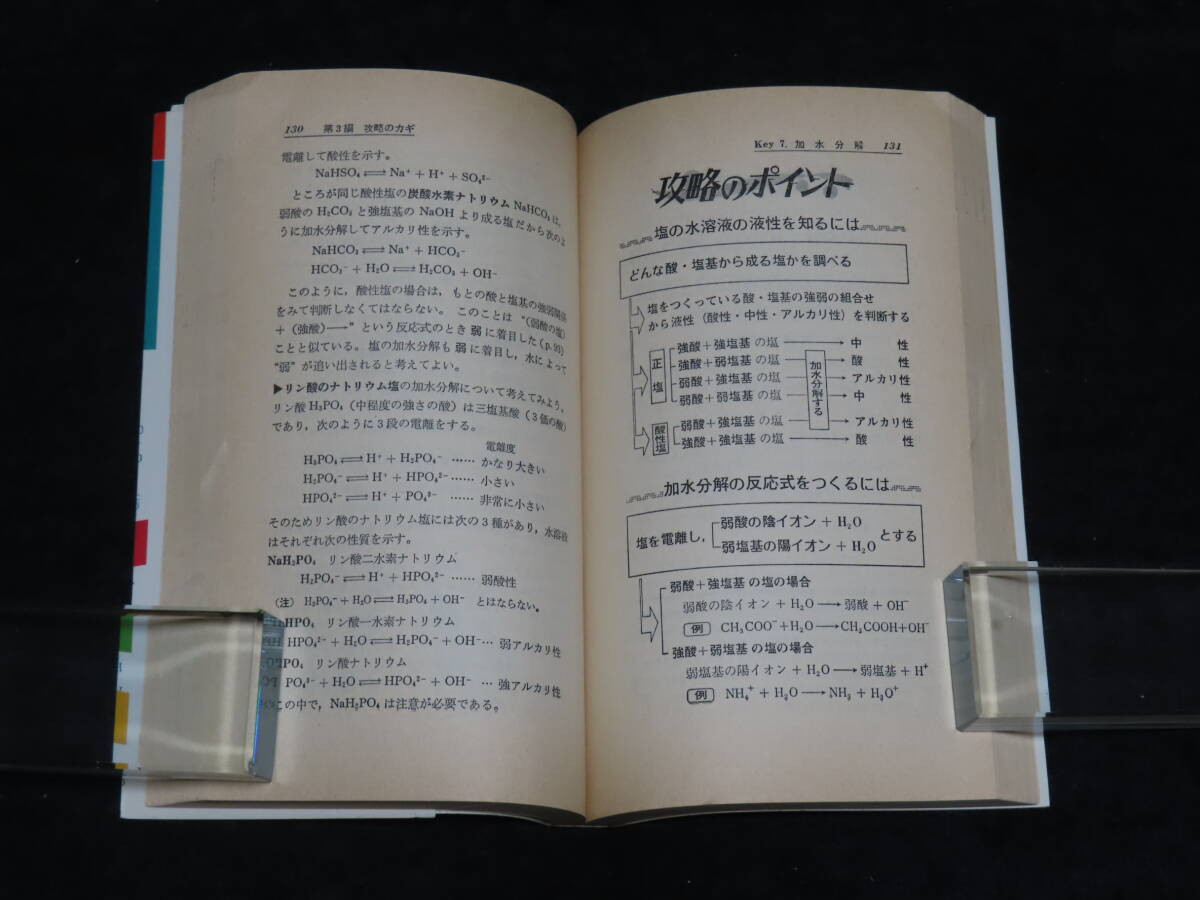 130 第3編 攻略のカギ
電離して酸性を示す。
NaHSO₄ ⇄ Na⁺ + H⁺ + SO₄²⁻
ところが同じ酸性塩の炭酸水素ナトリウム NaHCO₃は,
弱酸の H₂CO₃ と強塩基の NaOH より成る塩だから次のよ
うに加水分解してアルカリ性を示す。
NaHCO₃ ⇄ Na⁺ + HCO₃⁻
HCO₃⁻ + H₂O ⇄ H₂CO₃ + OH⁻
このように,酸性塩の場合は,もとの酸と塩基の強弱関係
をみて判断しなくてはならない。このことは“(弱酸の塩)
+(強酸)→”という反応式のとき弱に着目した(p.90)
ことと似ている。塩の加水分解も弱に着目し,水によって
“弱”が追い出されると考えてよい。
▶リン酸のナトリウム塩の加水分解について考えてみよう。
リン酸 H₃PO₄(中程度の強さの酸)は三塩基酸(3価の酸)
であり,次のように3段の電離をする。
電離度
H₃PO₄ ⇄ H⁺ + H₂PO₄⁻ …… かなり大きい
H₂PO₄⁻ ⇄ H⁺ + HPO₄²⁻ …… 小さい
HPO₄²⁻ ⇄ H⁺ + PO₄³⁻ …… 非常に小さい
そのためリン酸のナトリウム塩には次の3種があり,水溶液
はそれぞれ次の性質を示す。
NaH₂PO₄ リン酸二水素ナトリウム
H₂PO₄⁻ ⇄ H⁺ + HPO₄²⁻ …… 弱酸性
(注) H₂PO₄⁻ + H₂O ⇄ H₃PO₄ + OH⁻ とはならない。
HPO₄ リン酸一水素ナトリウム
HPO₄²⁻ + H₂O ⇄ H₂PO₄⁻ + OH⁻ … 弱アルカリ性
PO₄ リン酸ナトリウム
PO₄³⁻ + H₂O ⇄ HPO₄²⁻ + OH⁻ … 強アルカリ性
この中で, NaH₂PO₄ は注意が必要である。
Key 7. 加水分解 131
攻略のポイント
塩の水溶液の液性を知るには
どんな酸・塩基から成る塩かを調べる
塩をつくっている酸・塩基の強弱の組合せ
から液性(酸性・中性・アルカリ性)を判断する
正塩
強酸+強塩基の塩 → 中性
強酸+弱塩基の塩 → 酸性
弱酸+強塩基の塩 → アルカリ性
弱酸+弱塩基の塩 → 中性
加水分解する
酸性塩
弱酸+強塩基の塩 → アルカリ性
強酸+強塩基の塩 → 酸性
加水分解の反応式をつくるには
塩を電離し, 弱酸の陰イオン + H₂O
弱塩基の陽イオン + H₂O とする
弱酸+強塩基の塩の場合
弱酸の陰イオン + H₂O → 弱酸 + OH⁻
例 CH₃COO⁻+H₂O → CH₃COOH+OH⁻
強酸+弱塩基の塩の場合
弱塩基の陽イオン + H₂O → 弱塩基 + H⁺
例 NH₄⁺ + H₂O → NH₃ + H₃O⁺